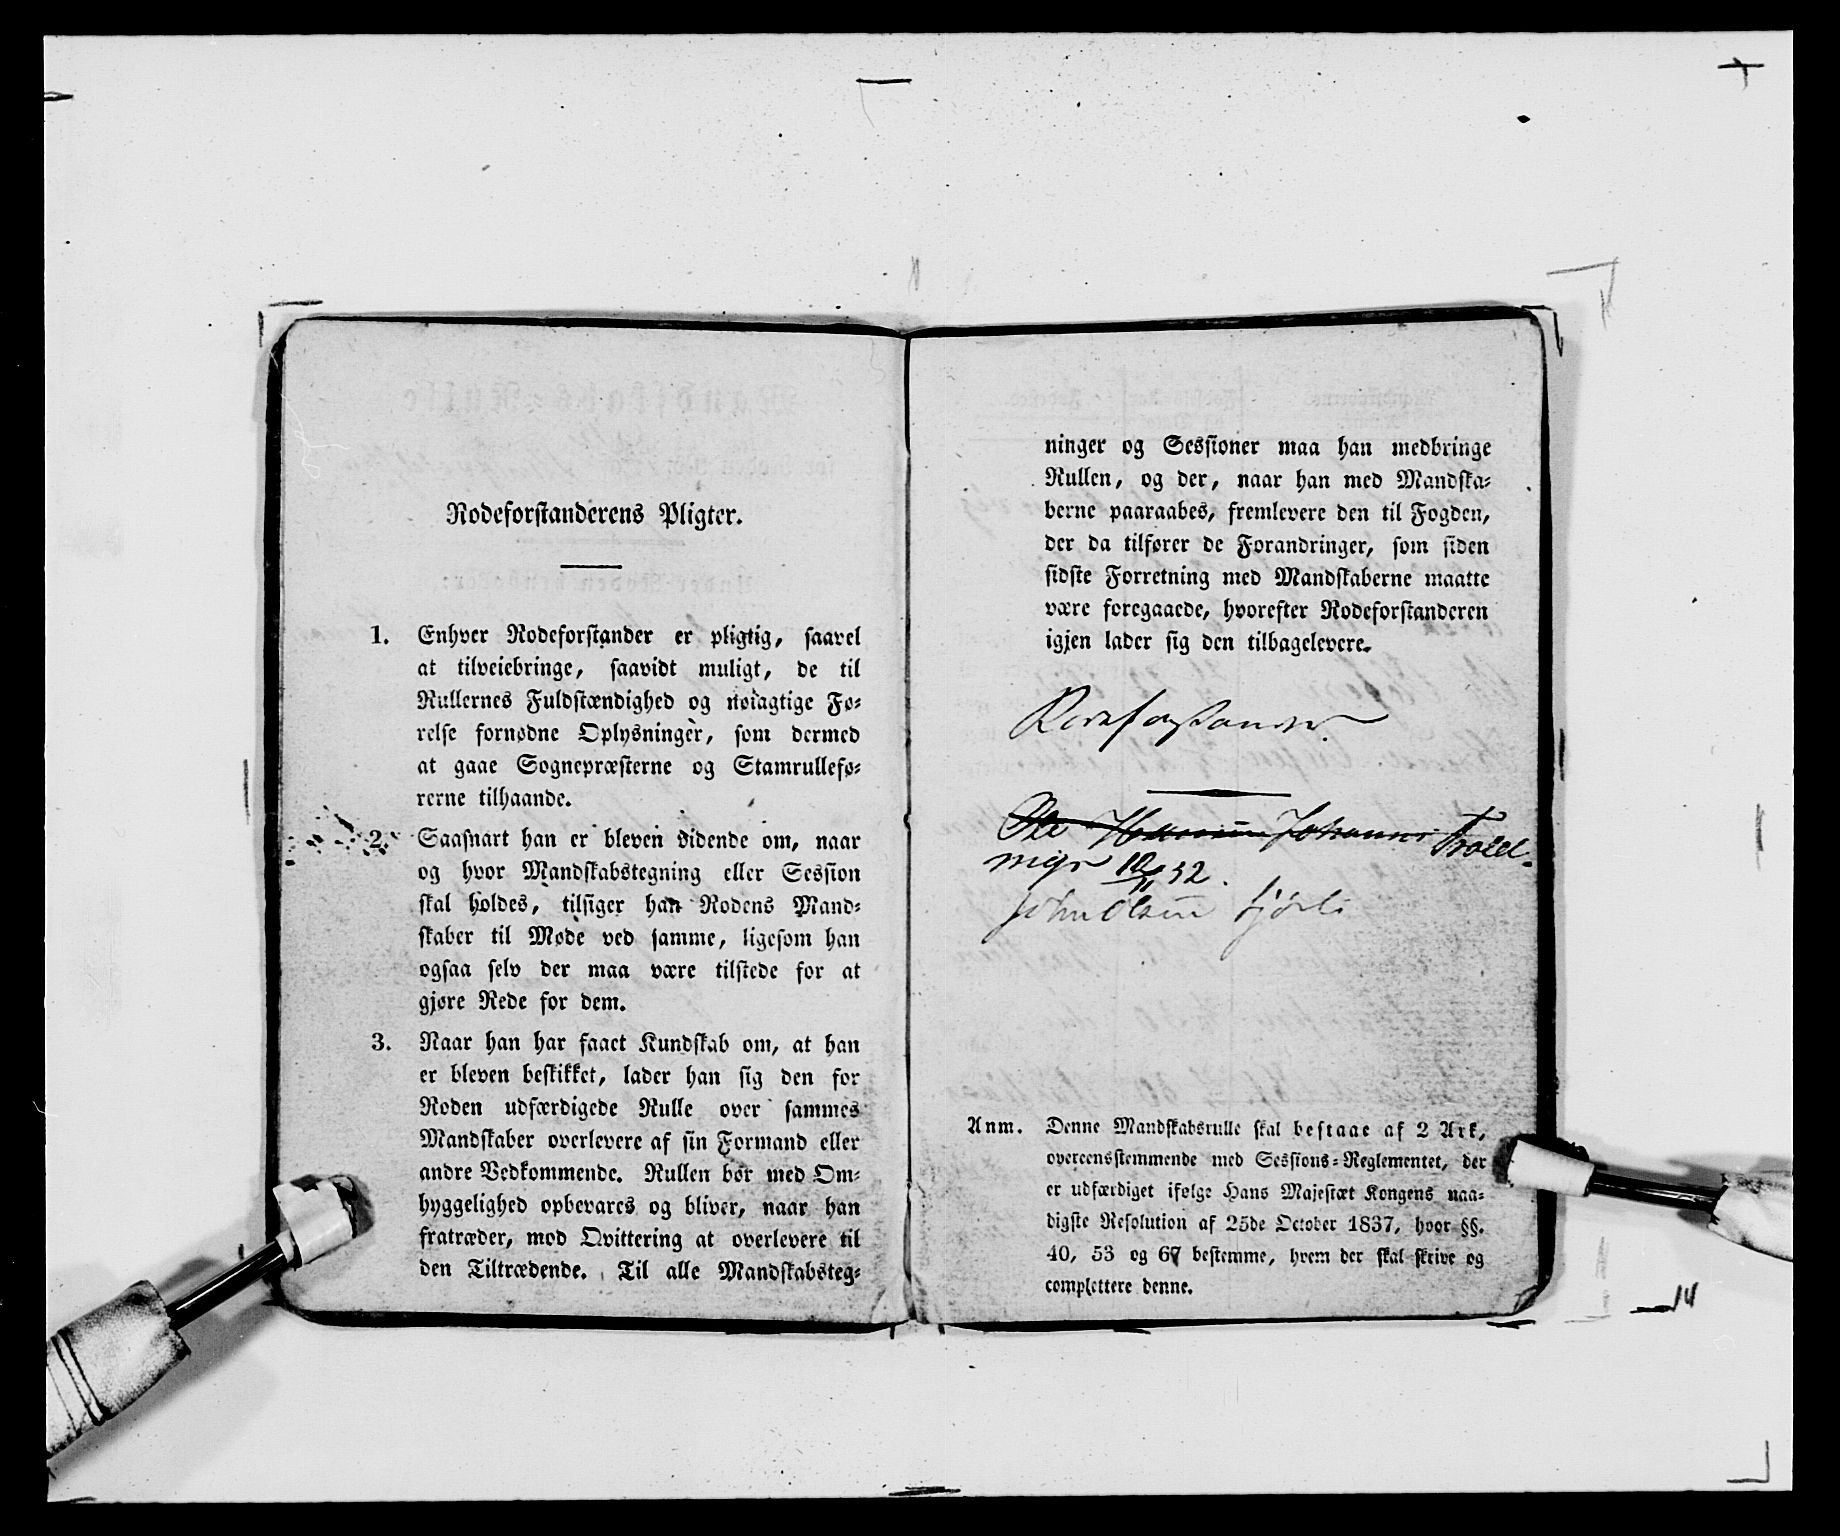 Rodeforstanderens Pligter.
1. Enhver Rodeforstander er pligtig, saavel
at tilveiebringe, saavidt muligt, de til
Rullernes Fuldstændighed og nøiagtige Fø-
relse fornødne Oplysninger, som dermed
at gaae Sognepræsterne og Stamrullefø-
rerne tilhaande.
2. Saasnart han er bleven vidende om, naar
og hvor Mandskabstegning eller Session
skal holdes, tilsiger han Rodens Mand-
skaber til Møde ved samme, ligesom han
ogsaa selv der maa være tilstede for at
gjøre Rede for dem.
3. Naar han har faaet Kundskab om, at han
er bleven beskikket, lader han sig den for
Roden udfærdigede Rulle over sammes
Mandskaber overlevere af sin Formand eller
andre Vedkommende. Rullen bør med Om-
hyggelighed opbevares og bliver, naar han
fratræder, mod Qvittering at overlevere til
den Tiltrædende. Til alle Mandskabsteg-
ninger og Sessioner maa han medbringe
Rullen, og der, naar han med Mandska-
berne paaraabes, fremlevere den til Fogden,
der da tilfører de Forandringer, som siden
sidste Forretning med Mandskaberne maatte
være foregaaede, hvorefter Rodeforstanderen
igjen lader sig den tilbagelevere.
Rodeforstander.
Ole Johannes
10/11 52.
John Olsen
Anm. Denne Mandskabsrulle skal bestaae af 2 Ark,
overeensstemmende med Sessions-Reglementet, der
er udfærdiget ifølge Hans Majestæt Kongens naa-
digste Resolution af 25de October 1837, hvor §§.
40, 53 og 67 bestemme, hvem der skal skrive og
complettere denne.
14